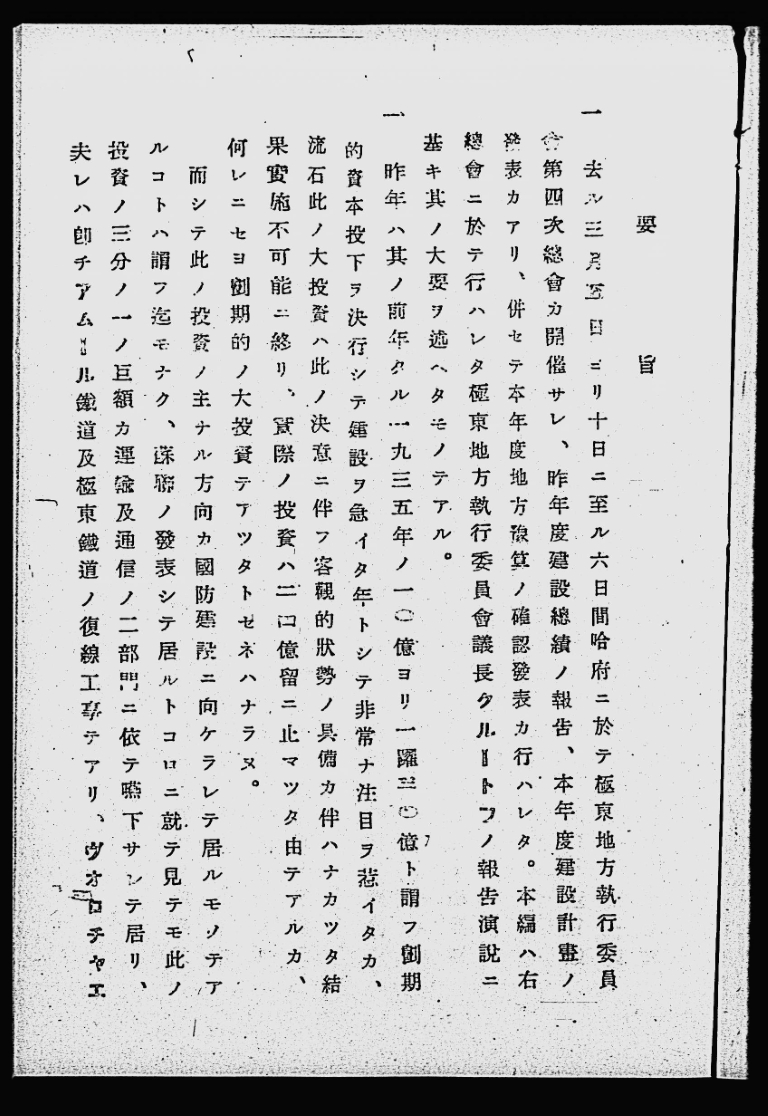 要旨
一 去ル三月五日ヨリ十日ニ至ル六日間哈府ニ於テ極東地方執行委員
會第四次總會カ開催サレ、昨年度建設總績ノ報告、本年度建設計畫ノ
發表カアリ、併セテ本年度地方豫算ノ確認發表カ行ハレタ。本編ハ右
總會ニ於テ行ハレタ極東地方執行委員會議長クルートフノ報告演說ニ
基キ其ノ大要ヲ述ヘタモノテアル。
一 昨年ハ其ノ前年タル一九三五年ノ一〇億ヨリ一躍三〇億ト謂フ劃期
的資本投下ヲ決行シテ建設ヲ急イタ年トシテ非常ナ注目ヲ惹イタカ、
流石此ノ大投資ハ此ノ決意ニ伴フ客觀的狀勢ノ具備カ伴ハナカツタ結
果實施不可能ニ終リ、實際ノ投資ハ二〇億留ニ止マツタ由テアルカ、
何レニセヨ劃期的ノ大投資テアツタトセネハナラヌ。
而シテ此ノ投資ノ主ナル方向カ國防建設ニ向ケラレテ居ルモノテア
ルコトハ謂フ迄モナク、蘇聯ノ發表シテ居ルトコロニ就テ見テモ此ノ
投資ノ三分ノ一ノ巨額カ運輸及通信ノ二部門ニ依テ嚥下サレテ居リ、
夫レハ卽チアムール鐵道及極東鐵道ノ復線工事テアリ、ヴオロチヤエ